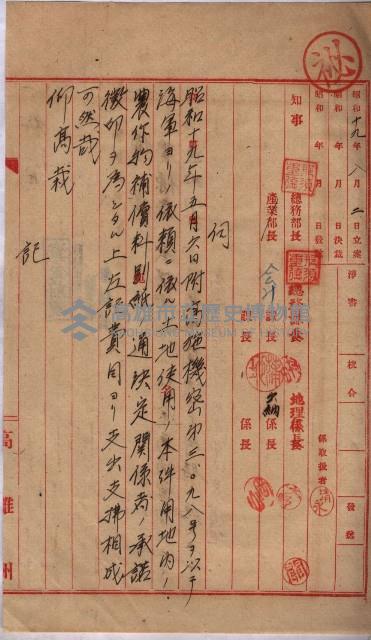 秘
昭和十九年八月二日立案
昭和 年 月 日決裁
昭和 年 月 日發送
淨書
校合
發送
知事
總務部長
產業部長
總務課長
會計課長
課長
地理係長
出納係長
係長
係取扱者
清永
伺
昭和十九年五月六日附 施機密第三〇九八号ヲ以テ
海軍ヨリ依頼ニ係ル 地使用ノ本件用地内ノ
農作物補償料別紙ノ通決定関係者ノ承諾
徴印ヲ為シタル上左記費目ヨリ支出支拂相成
可然哉
仰高裁
記
高雄州
高雄市立歷史博物館